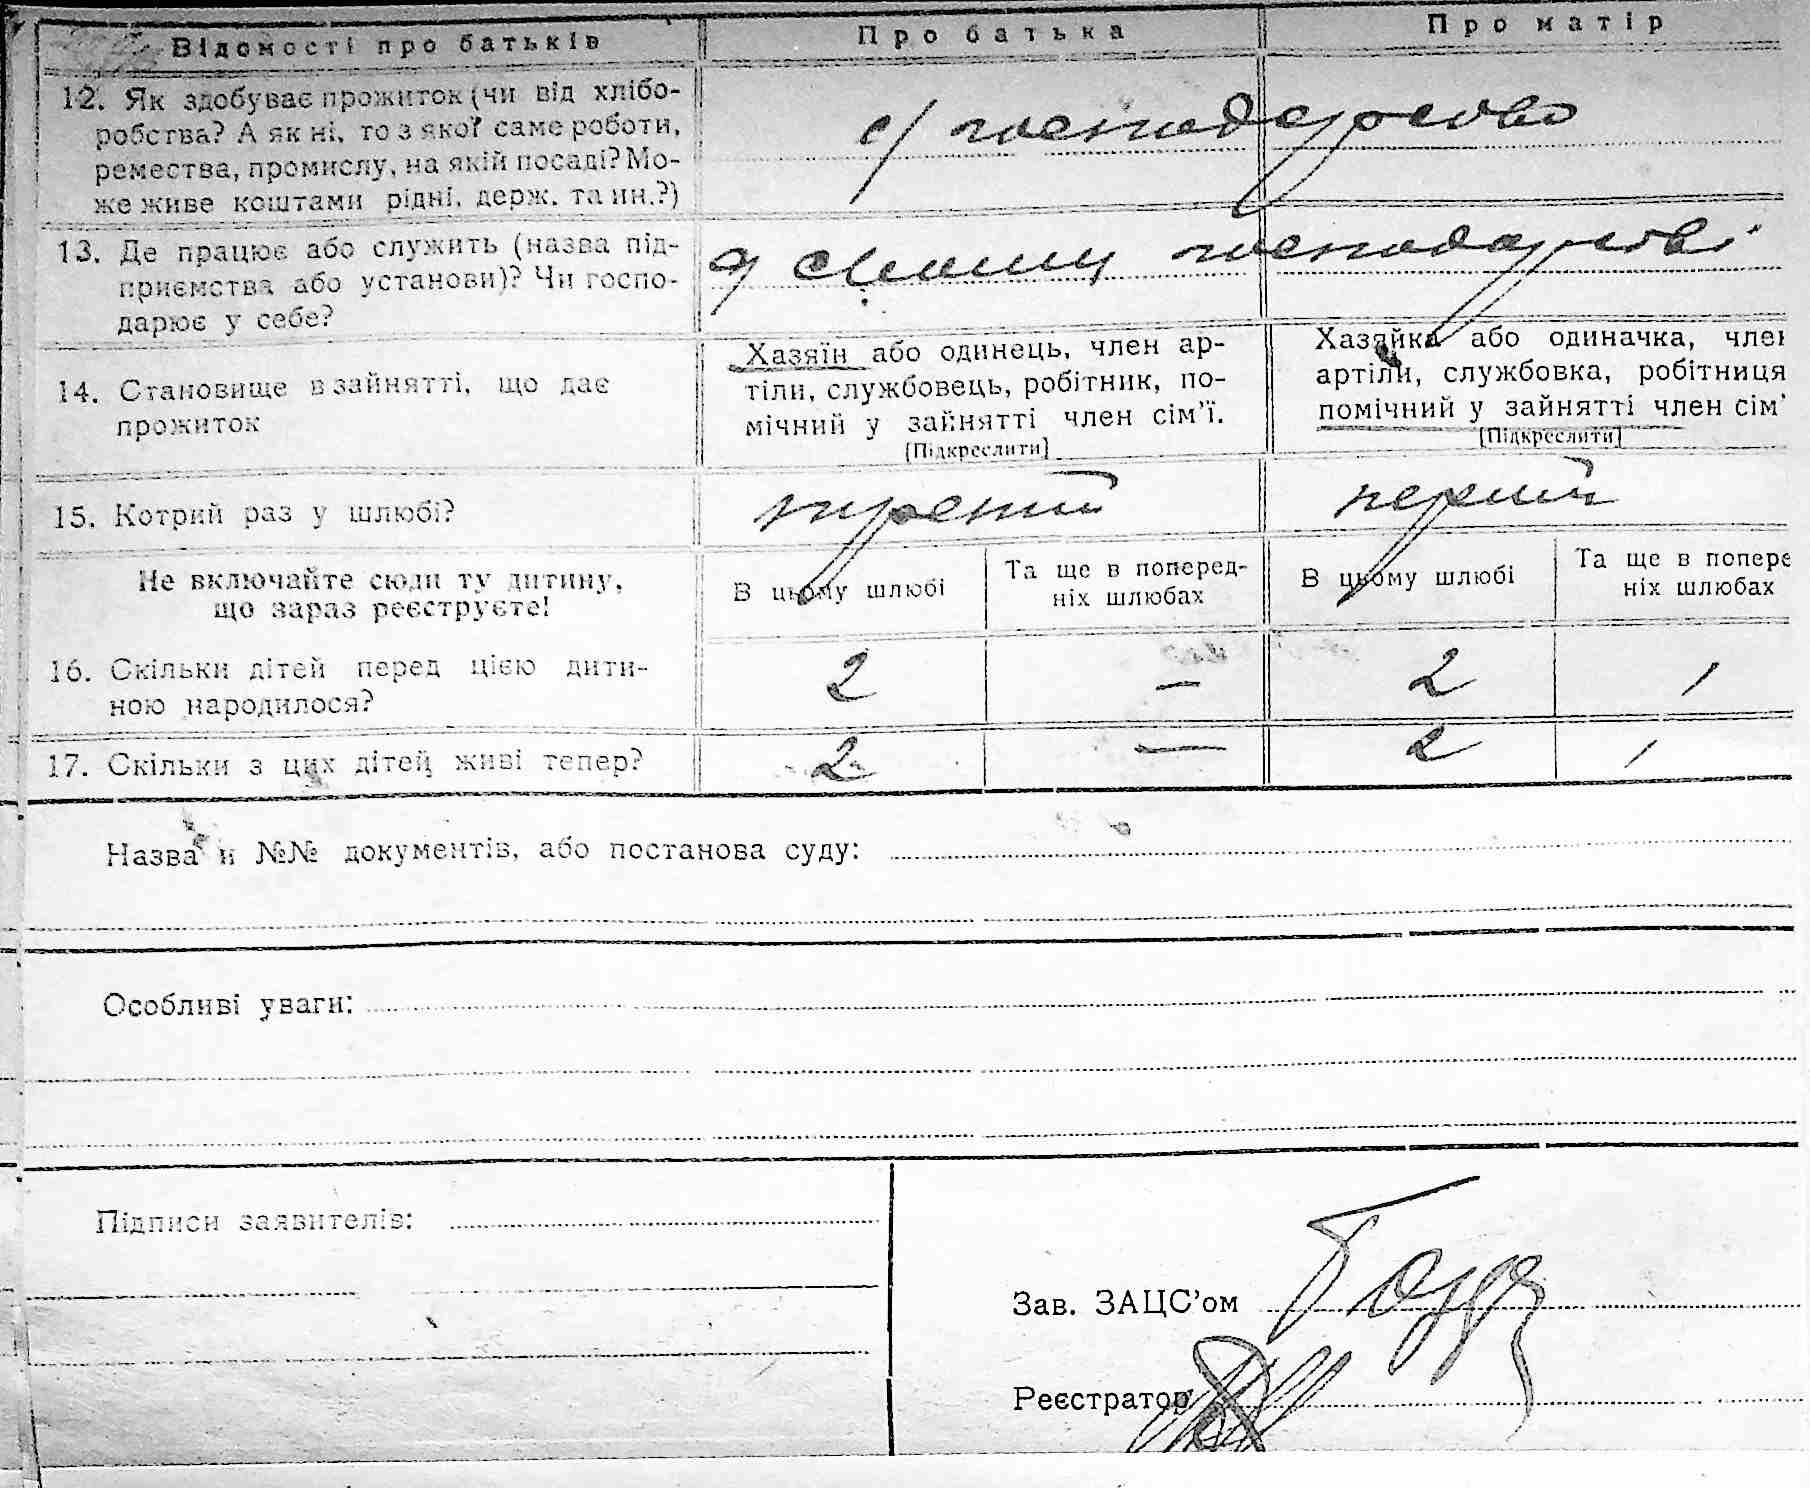 Відомості про батьків
Про батька
Про матір
12. Як здобуває прожиток (чи від хлібо-
робства? А як ні, то з якої саме роботи,
ремества, промислу, на якій посаді? Мо-
же живе коштами рідні, держ. та ин.?)
с/ господарство
13. Де працює або служить (назва під-
приємства або установи)? Чи госпо-
дарює у себе?
у своїму господарстві
14. Становище в зайнятті, що дає
прожиток
Хазяїн або одинець, член ар-
тіли, службовець, робітник, по-
мічний у зайнятті член сім’ї.
[Підкреслити]
Хазяйка або одиначка, член
артіли, службовка, робітниця
помічний у зайнятті член сім’
[Підкреслити]
15. Котрий раз у шлюбі?
третій
перший
Не включайте сюди ту дитину,
що зараз реєструєте!
В цьому шлюбі
Та ще в поперед-
ніх шлюбах
В цьому шлюбі
Та ще в попере
ніх шлюбах
16. Скільки дітей перед цією дити-
ною народилося?
2
—
2
1
17. Скільки з цих дітей живі тепер?
2
—
2
1
Назва й №№ документів, або постанова суду:
Особливі уваги:
Підписи заявителів:
Зав. ЗАЦС’ом
Реєстратор